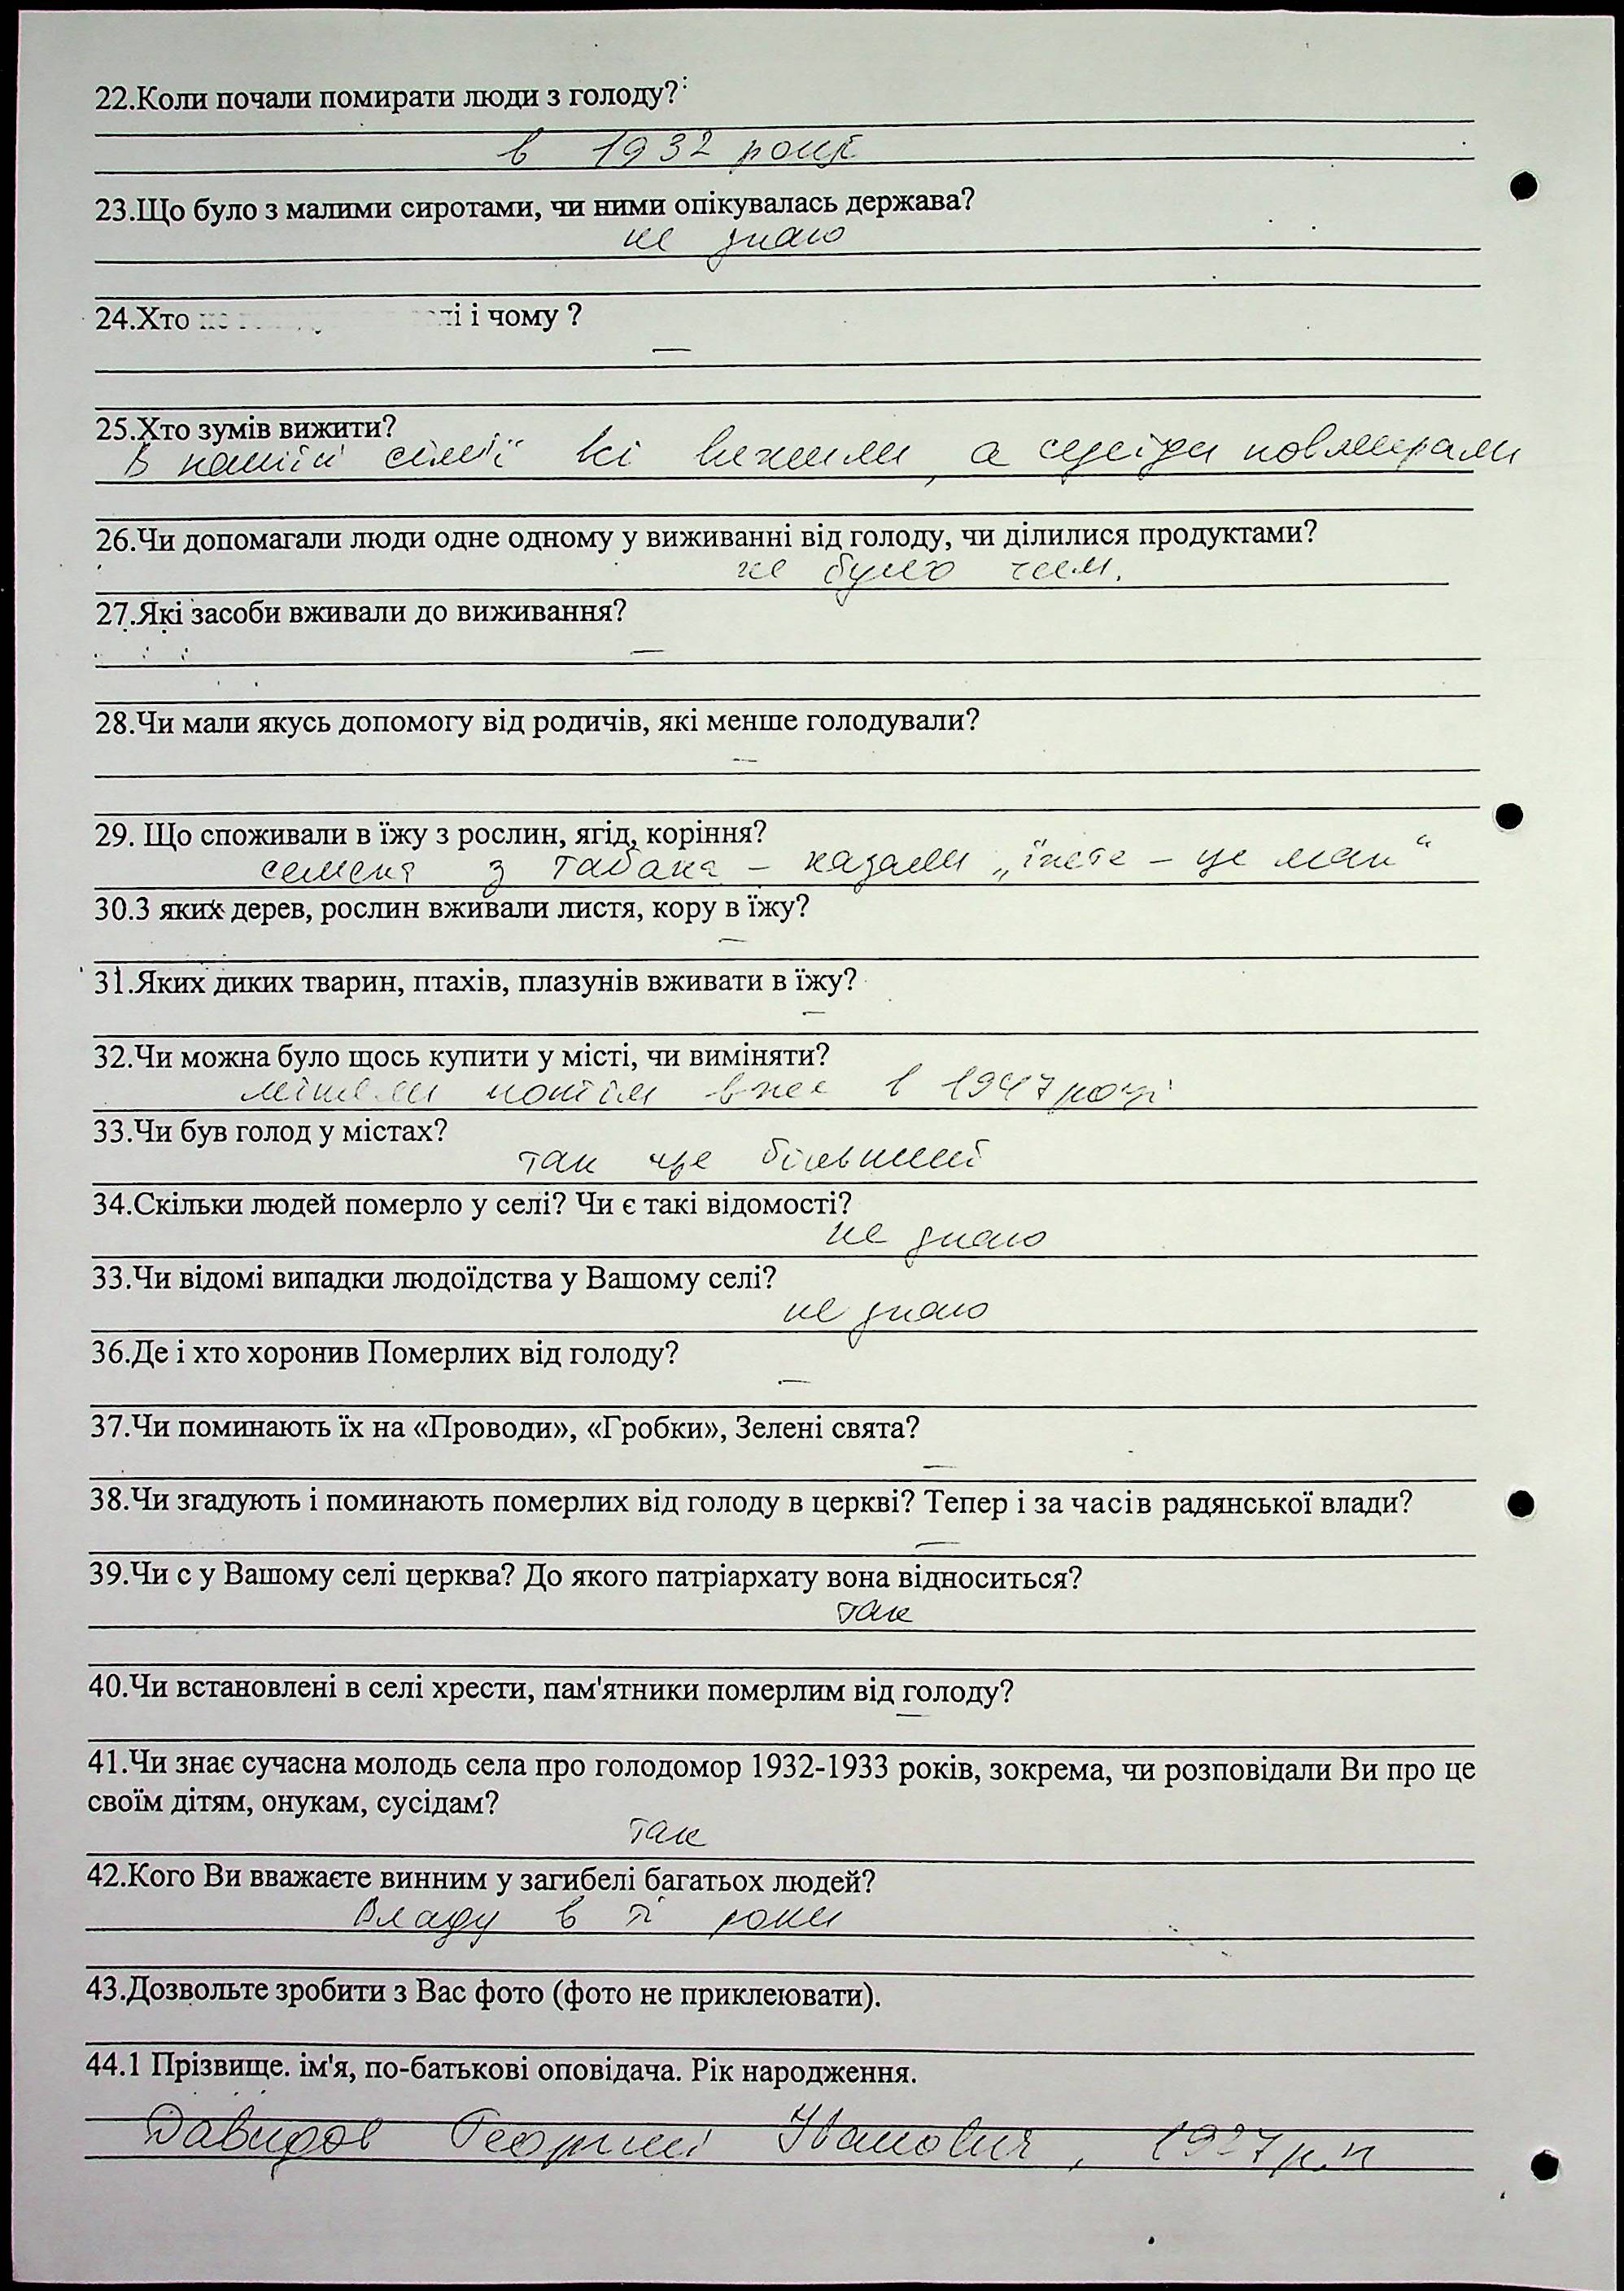 22.Коли почали помирати люди з голоду?
в 1932 році
23.Що було з малими сиротами, чи ними опікувалась держава?
не знаю
24.Хто і чому ?
—
25.Хто зумів вижити?
В нашій сім'ї всі вижили, а сусіди повмирали
26.Чи допомагали люди одне одному у виживанні від голоду, чи ділилися продуктами?
не було чим.
27.Які засоби вживали до виживання?
—
28.Чи мали якусь допомогу від родичів, які менше голодували?
—
29. Що споживали в їжу з рослин, ягід, коріння?
семена з табака – казали „їжте – це мак“
30.З яких дерев, рослин вживали листя, кору в їжу?
—
31.Яких диких тварин, птахів, плазунів вживати в їжу?
—
32.Чи можна було щось купити у місті, чи виміняти?
міняли потім вже в 1947 році
33.Чи був голод у містах?
так ще більший
34.Скільки людей померло у селі? Чи є такі відомості?
не знаю
33.Чи відомі випадки людоїдства у Вашому селі?
не знаю
36.Де і хто хоронив Померлих від голоду?
—
37.Чи поминають їх на «Проводи», «Гробки», Зелені свята?
—
38.Чи згадують і поминають померлих від голоду в церкві? Тепер і за часів радянської влади?
—
39.Чи с у Вашому селі церква? До якого патріархату вона відноситься?
так
40.Чи встановлені в селі хрести, пам'ятники померлим від голоду?
—
41.Чи знає сучасна молодь села про голодомор 1932-1933 років, зокрема, чи розповідали Ви про це
своїм дітям, онукам, сусідам?
так
42.Кого Ви вважаєте винним у загибелі багатьох людей?
Владу в ті роки
43.Дозвольте зробити з Вас фото (фото не приклеювати).
44.1 Прізвище. ім'я, по-батькові оповідача. Рік народження.
Давидов Георгій Іванович, 1927 р.н